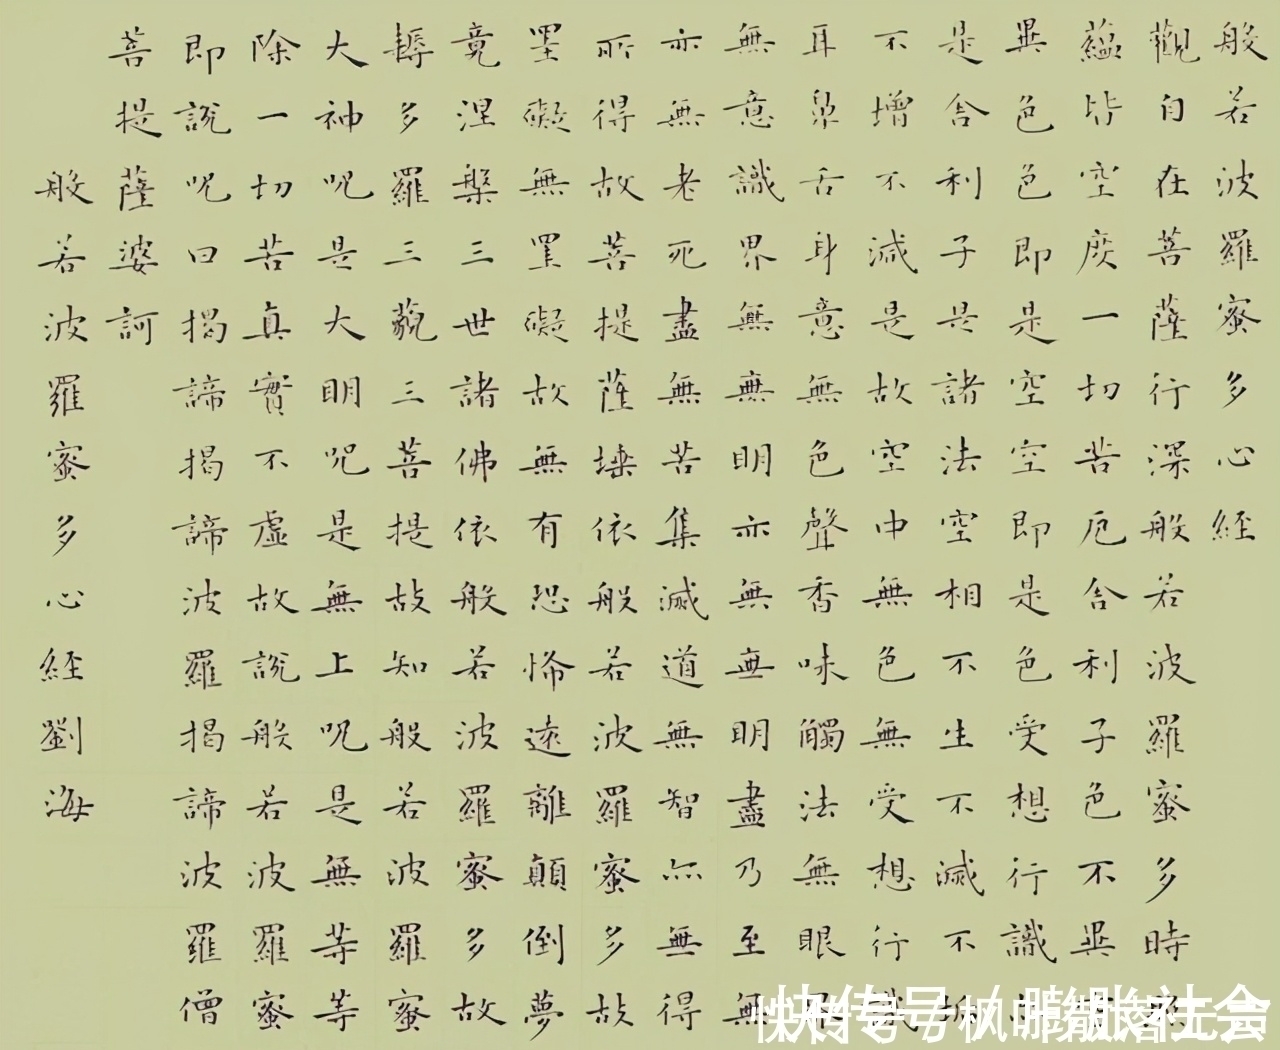 般若波羅蜜多心経
觀自在菩薩行深般若波羅蜜多時
蘊皆空度一切苦厄舍利子色不異
異色色即是空空即是色受想行識
是舍利子是諸法空相不生不滅不
不增不減是故空中無色無受想行識
耳鼻舌身意無色聲香味觸法無眼界
無意識界無無明亦無無明盡乃至無
亦無老死盡無苦集滅道無智亦無得
所得故菩提薩埵依般若波羅蜜多故
罣礙無罣礙故無有恐怖遠離顛倒夢
竟涅槃三世諸佛依般若波羅蜜多故
耨多羅三藐三菩提故知般若波羅蜜
大神呪是大明呪是無上呪是無等等
除一切苦真實不虛故說般若波羅蜜
即說呪曰揭諦揭諦波羅揭諦波羅僧
菩提薩婆訶
般若波羅蜜多心経劉海
快传号/